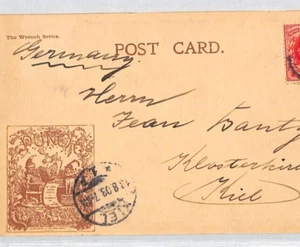 The Wrench Series.
POST CARD.
Germany
Herrn
Jean Bantz
Klosterkir
Kiel
PUNCH
KIEL